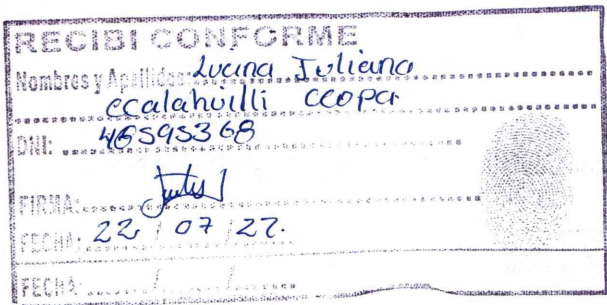 RECIBI CONFORME
Nombres y Apellidos: Luana Juliana
ccalahuilli ccopa
DNI: 46595368
FIRMA:
FECHA: 22 / 07 / 22.
FECHA: / /